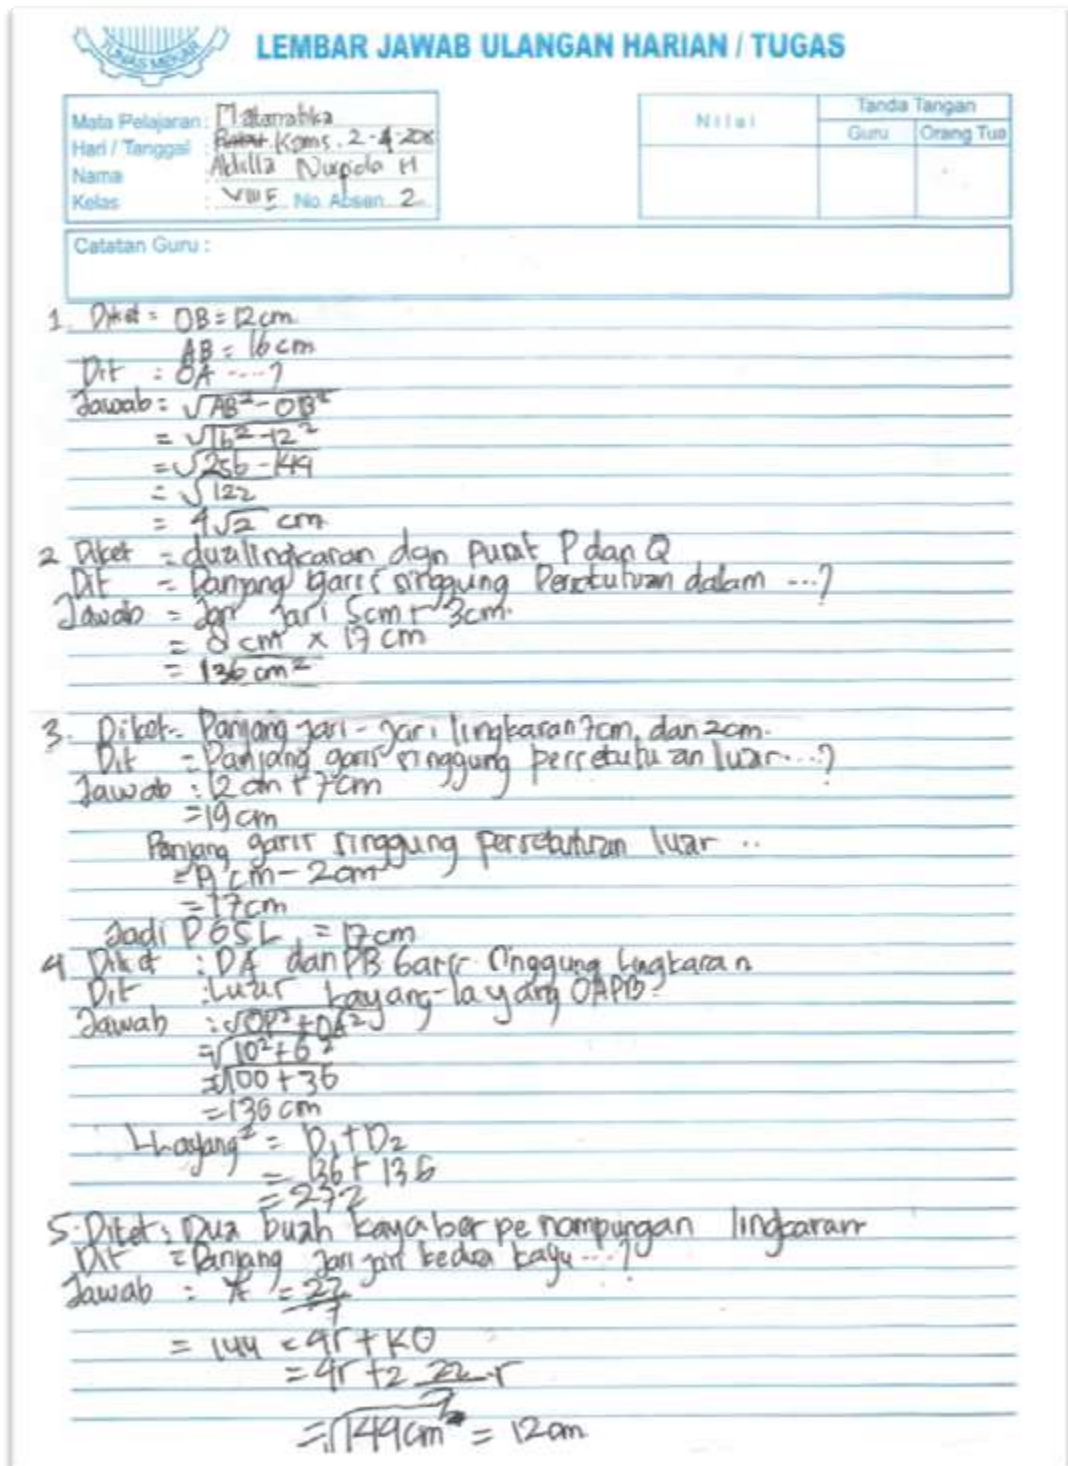 TUNAS MEKAR
LEMBAR JAWAB ULANGAN HARIAN / TUGAS
Mata Pelajaran : Matamatika
Hari / Tanggal : Kams. 2-4-2015
Nama : Aldilla Nurpiola H
Kelas : VIII E No. Absen 2
Nilai
Tanda Tangan
Guru
Orang Tua
Catatan Guru :
1. Diket = OB = 12 cm
AB = 16 cm
Dit : OA ....?
Jawab = √AB² - OB²
= √16² - 12²
= √256 - 144
= √122
= 4√2 cm
2 Diket = dua lingkaran dgn Pusat P dan Q
Dit = Panjang garis singgung Persekutuan dalam ...?
Jawab = Jari jari 5cm + 3cm.
= 8 cm x 17 cm
= 136 cm²
3. Diket = Panjang jari - jari lingkaran 7cm, dan 2cm.
Dit = Panjang garis singgung persekutuan luar ...?
Jawab : 12 cm + 7cm
= 19 cm
Panjang garis singgung persekutuan luar ..
= 19 cm - 2cm
= 17cm
Jadi PGSL = 17cm
4 Diket : PA dan PB Garis Singgung Lingkaran
Dit : Luas Layang-layang OAPB?
Jawab : √OP² + OA²
= √10² + 6²
= √100 + 36
= 136 cm
L Layang² = D1 + D2
= 136 + 136
= 272
5. Diket : Dua buah kayu ber penampungan lingkaran
Dit = Panjang jari jari kedua kayu ...?
Jawab : π = 22/7
= 144 = 4r + KO
= 4r + 2 22/7 r
= √144cm² = 12cm